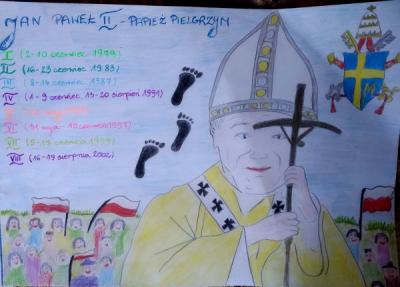 JAN PAWEŁ II - PAPIEŻ PIELGRZYM
I (2-10 czerwiec 1979)
II (16-23 czerwiec 1983)
III (8-14 czerwiec 1987)
IV (1-9 czerwiec, 13-20 sierpień 1991)
V
VI (31 maja - 10 czerwca 1997)
VII (5-17 czerwca 1999)
VIII (16-19 sierpnia 2002)
M